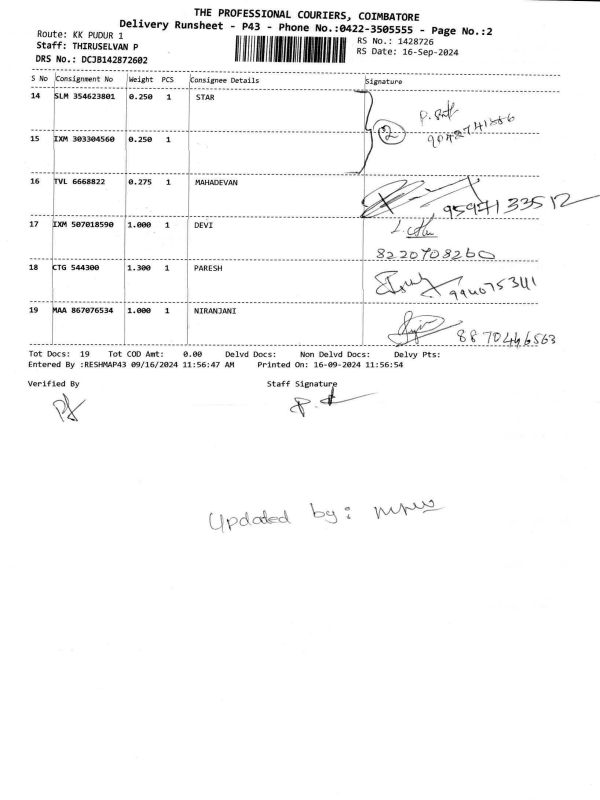 THE PROFESSIONAL COURIERS, COIMBATORE
Delivery Runsheet - P43 - Phone No.:0422-3505555 - Page No.:2
Route: KK PUDUR 1
RS No.: 1428726
Staff: THIRUSELVAN P
RS Date: 16-Sep-2024
DRS No.: DCJB142872602
S No Consignment No Weight PCS Consignee Details Signature
14 SLM 354623801 0.250 1 STAR
2
15 IXM 303304560 0.250 1
16 TVL 6668822 0.275 1 MAHADEVAN
9597133512
17 IXM 507018590 1.000 1 DEVI
8220708260
18 CTG 544300 1.300 1 PARESH
19 MAA 867076534 1.000 1 NIRANJANI
8870446563
Tot Docs: 19 Tot COD Amt: 0.00 Delvd Docs: Non Delvd Docs: Delvy Pts:
Entered By :RESHMAP43 09/16/2024 11:56:47 AM Printed On: 16-09-2024 11:56:54
Verified By Staff Signature
Updated by: